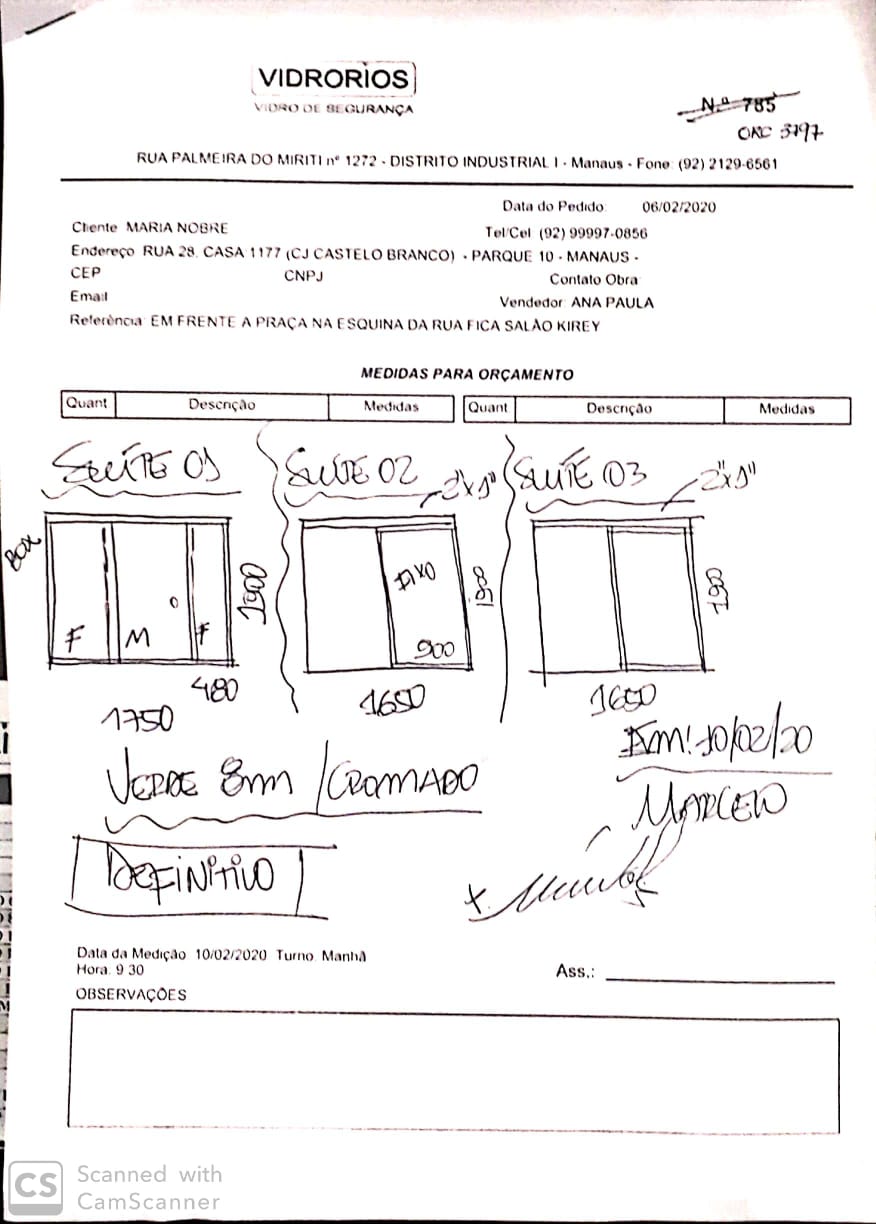 VIDRORIOS
VIDRO DE SEGURANÇA
N.º 785
ORC 3797
RUA PALMEIRA DO MIRITI nº 1272 - DISTRITO INDUSTRIAL I - Manaus - Fone: (92) 2129-6561
Data do Pedido: 06/02/2020
Cliente MARIA NOBRE
Tel/Cel (92) 99997-0856
Endereço RUA 28, CASA 1177 (CJ CASTELO BRANCO) - PARQUE 10 - MANAUS -
CEP CNPJ Contato Obra
Email Vendedor ANA PAULA
Referência: EM FRENTE A PRAÇA NA ESQUINA DA RUA FICA SALÃO KIREY
MEDIDAS PARA ORÇAMENTO
Quant Descrição Medidas Quant Descrição Medidas
SUÍTE 01 SUÍTE 02 2"x1" SUÍTE 03 2"x1"
BOX
F M F
1900
480
1750
FIXO
900
1900
1650
1900
1650
EM: 10/02/20
VERDE 8mm / CROMADO
MARCELO
DEFINITIVO
Data da Medição 10/02/2020 Turno Manhã
Hora: 9 30
Ass.:
OBSERVAÇÕES
CS Scanned with
CamScanner